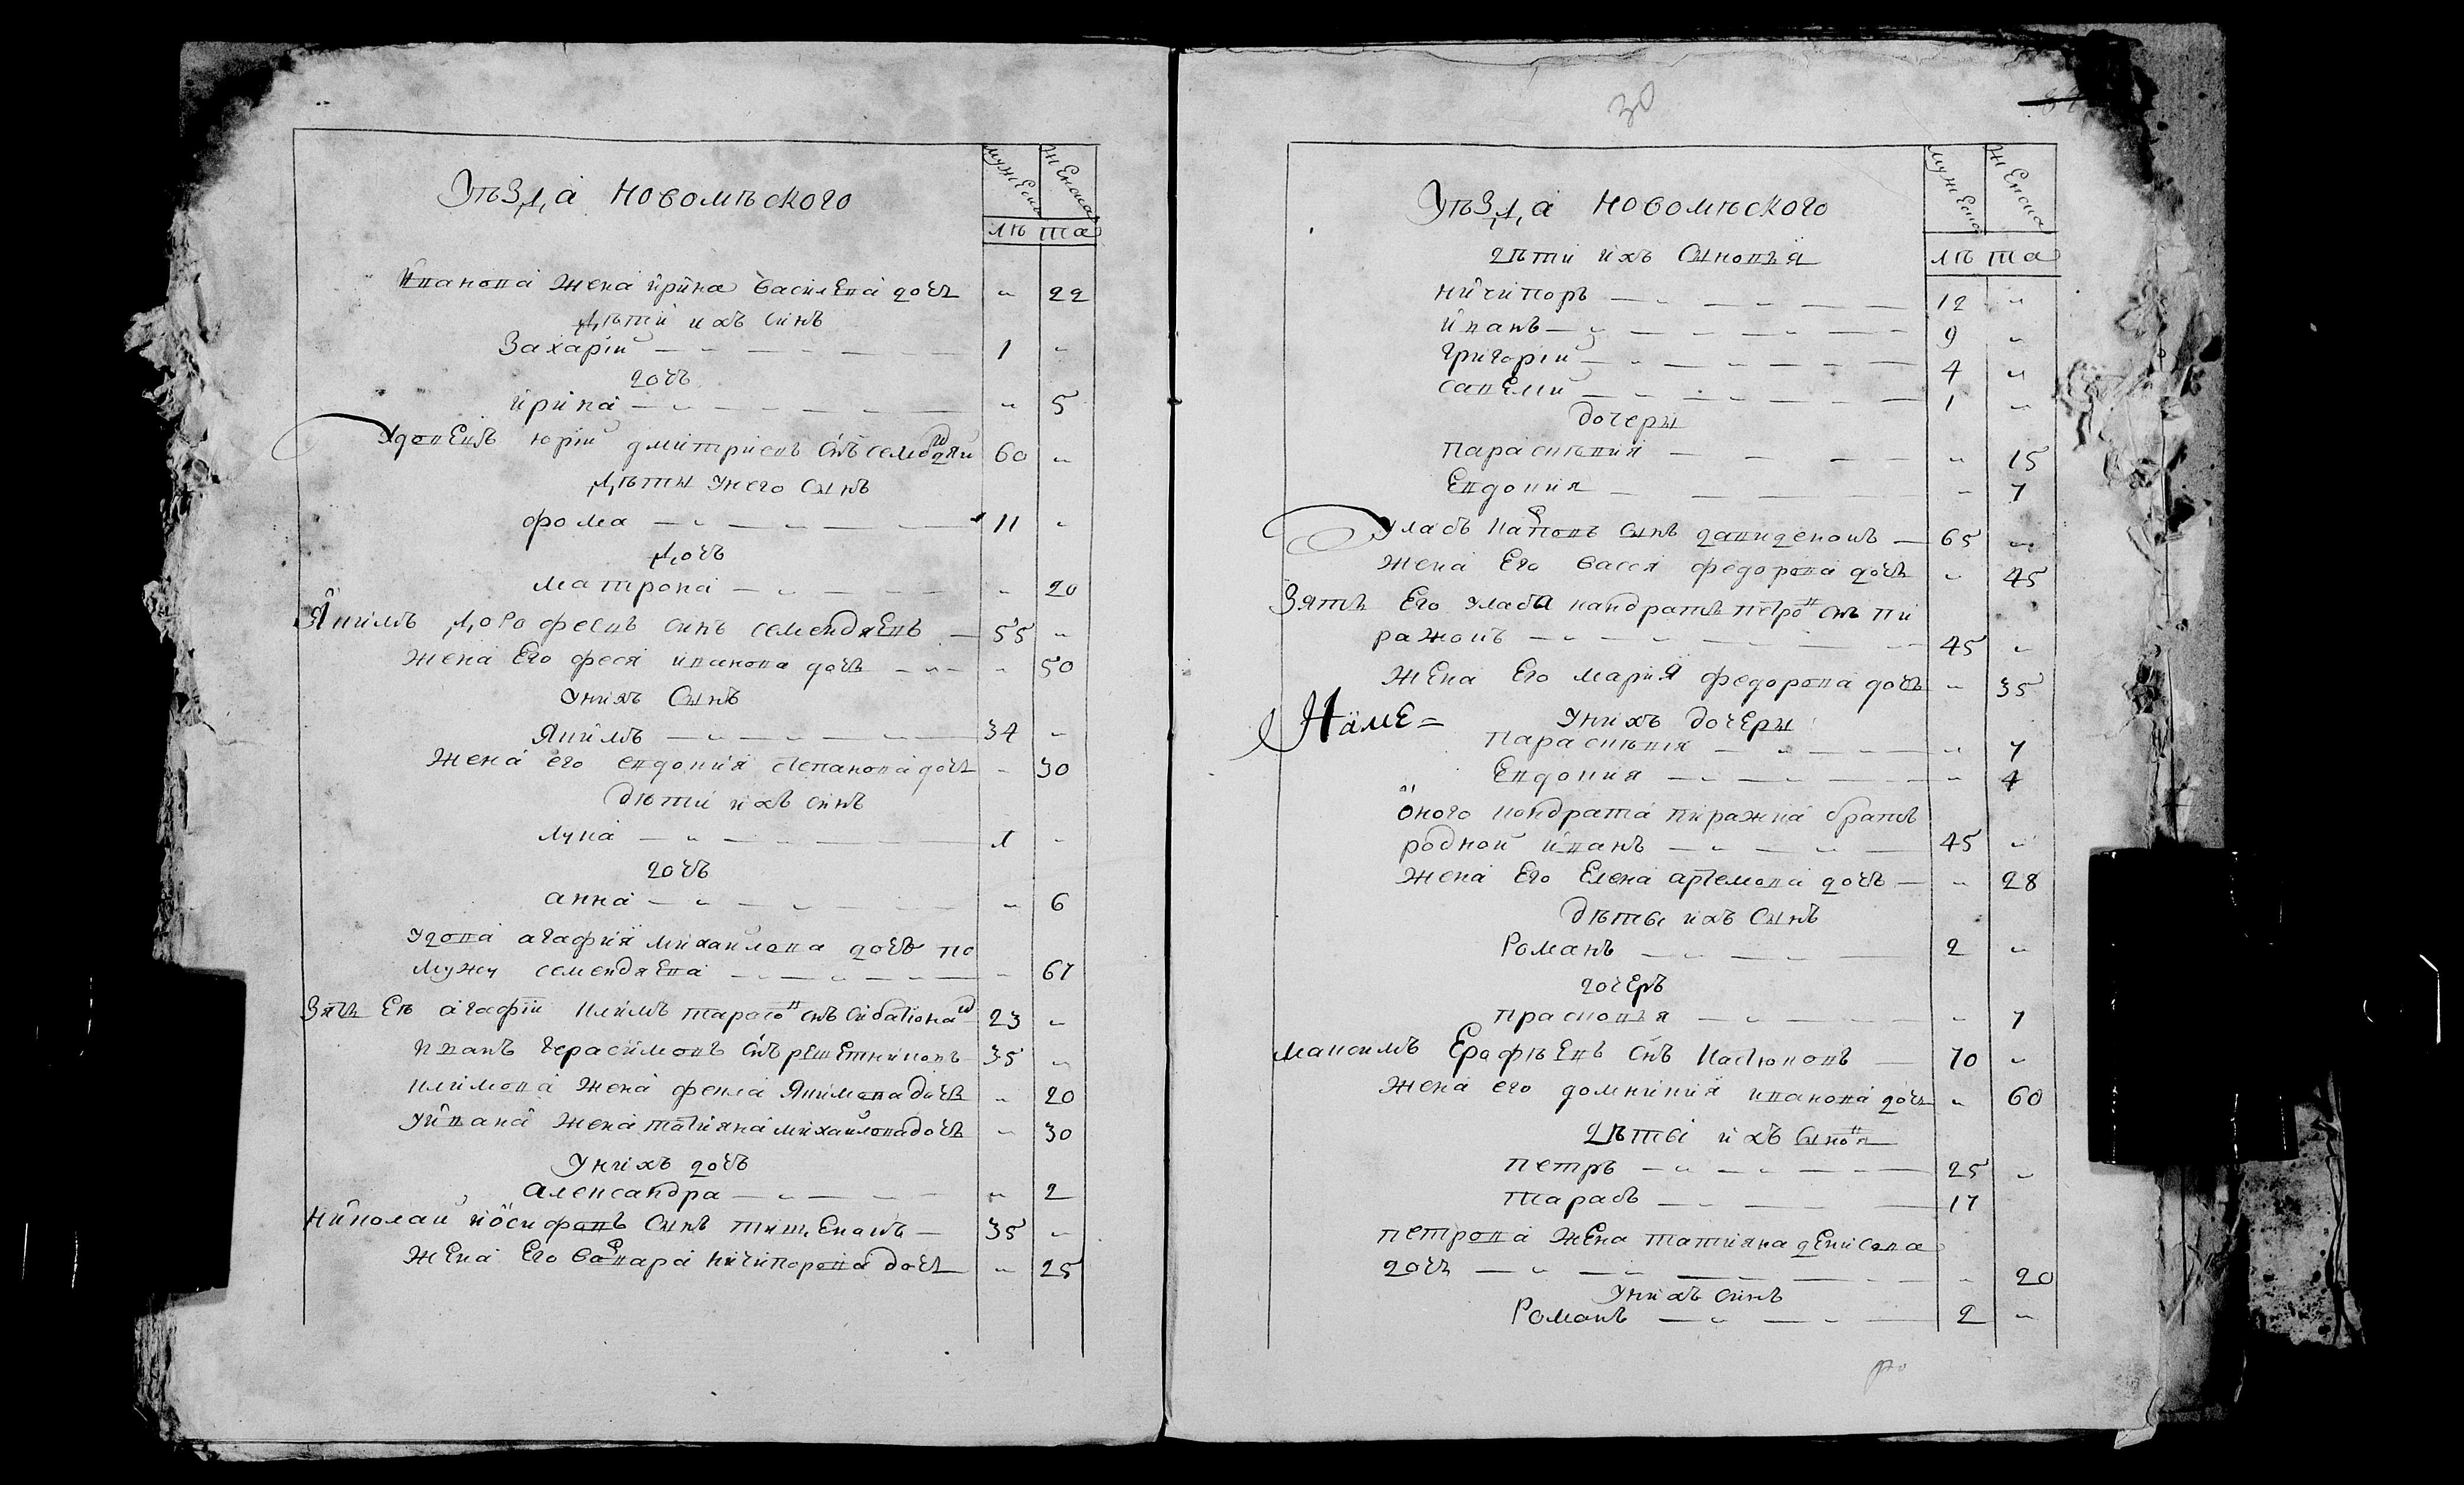 Уѣзда Новомѣского
мужеска
женска
лѣта
Иванова жена Ирина Василева дочь „ 22
Дѣти ихъ синъ
Захарій 1 „
дочь
Ирина „ 5
Удовецъ Юрій Дмитріевъ снъ Семендяй 60 „
Дѣты у него сынъ
Фома 11 „
Дочь
Матрона „ 20
Якимъ Дорофеевъ синъ Семендяевъ 55 „
Жена его Феся Иванова дочь „ 50
У нихъ сынъ
Якимъ 34 „
Жена его Евдокия Степанова дочь „ 30
Дѣти ихъ синъ
Лука 1 „
дочь
Анна „ 6
Удова Агафия Михайлова дочь по
мужу Семендяева „ 67
Зять еѣ Агафіи Климъ Тарасовъ снъ 23 „
Иванъ Герасимовъ снъ Решетниковъ 35 „
Климова жена Фекла Якимова дочь „ 20
У Ивана жена Татияна Михайлова дочь „ 30
У нихъ дочь
Александра „ 2
Николай Иосифовъ сынъ Тищенковъ 35 „
Жена его Варвара Ничипорова дочь „ 25
30
Уѣзда Новомѣского
мужеска
женска
лѣта
дѣти ихъ сыновья
Ничипоръ 12 „
Иванъ 9 „
Григорій 4 „
Савелий 1 „
дочеры
Параскѣвия „ 15
Евдокия „ 7
Уласъ Карповъ сынъ Давиденковъ 65 „
Жена его Васся Федорова дочь „ 45
Зять его Уласа Кандратъ Петровъ снъ Пи
ражокъ 45 „
Жена его Мария Федорова дочь „ 35
Наме=
У нихъ дочеры
Параскѣвия „ 7
Евдокия „ 4
Оного Кондрата Пиражка братъ
родной Иванъ 45 „
Жена его Елена Артемова дочь „ 28
Дѣты ихъ сынъ
Романъ 2 „
дочеръ
Прасковья „ 7
Максимъ Ерофѣевъ снъ Костюковъ 70 „
Жена его Домникия Иванова дочь „ 60
Дѣты ихъ синовя
Петръ 25 „
Тарасъ 17
Петрова жена Татияна Денисова
дочь „ 20
У нихъ синъ
Романъ 2 „